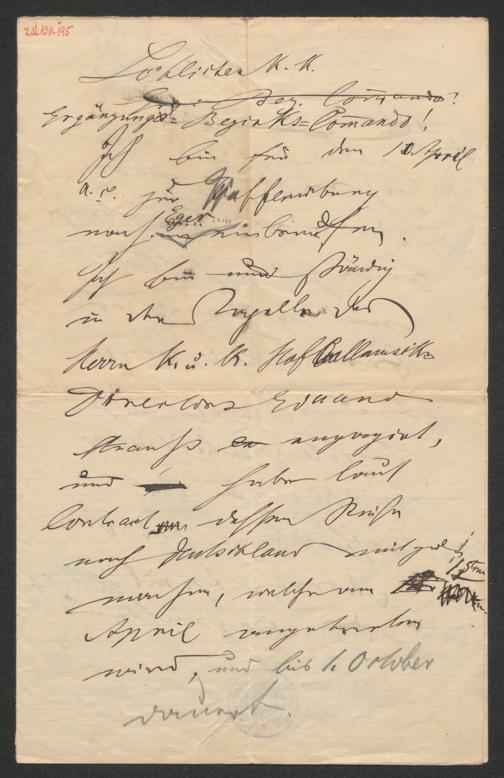 Löblichen K. K.
Bez. Comando!
Ergänzungs= Bezirks=Comando!
Ich bin für den 10 April
a. c. zur Waffenübung
nach Eger einberufen.
Ich bin und ständig
in der Capelle des
Herrn K. u. K. Hof Ballmusik
Directors Eduard
Strauss engagirt,
und habe laut
Contract dessen Reise
nach Deutschland mit zu
machen, welche am 1ten
April angetreten
wird, und bis 1. October
dauert.